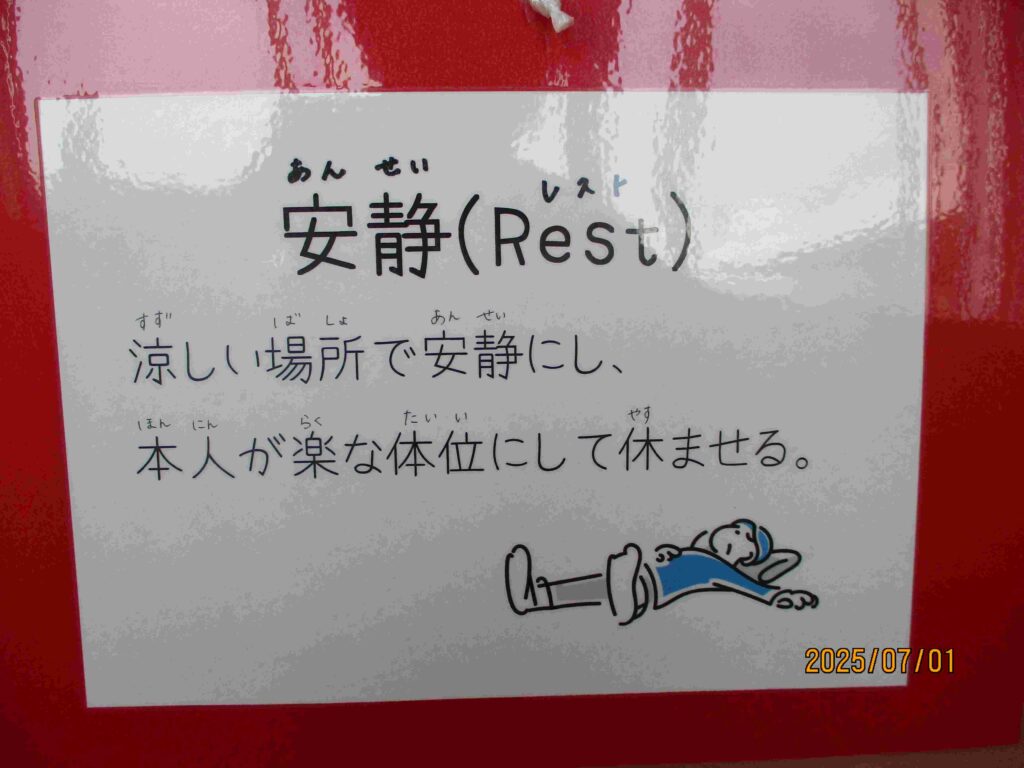 あん せい
レスト
安静(Rest)
すず ばしょ あん せい
涼しい場所で安静にし、
ほん にん らく たいい やす
本人が楽な体位にして休ませる。
2025/07/01